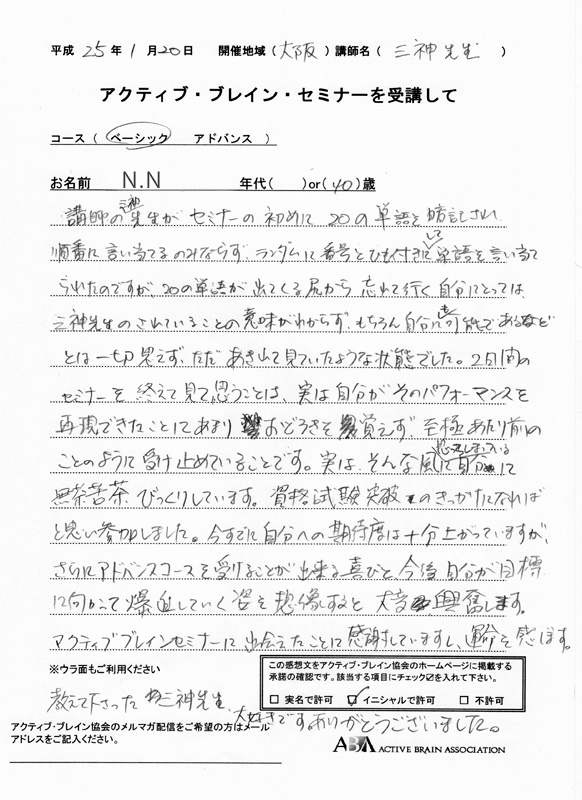 平成 25年 1月20日 開催地域(大阪)講師名(三神先生)
アクティブ・ブレイン・セミナーを受講して
コース( ベーシック アドバンス )
お名前 N.N 年代( )or(40)歳
講師の三神先生がセミナーの初めに20の単語を暗記され、
順番に言い当てるのみならず、ランダムに番号とひも付きにして単語を言い当て
られたのですが、20の単語が出てくる尻から忘れて行く自分にとっては、
三神先生のされていることの意味がわからず、もちろん自分に可能であるなど
とは一切思えず、ただあきれて見ていたような状態でした。2日間の
セミナーを終えて見て思うことは、実は自分がそのパフォーマンスを
再現できたことにあまりおどろきを覚えず、至極あたり前の
ことのように受け止めていることです。実は、そんな風に思ってしまっている自分に
無茶苦茶びっくりしています。資格試験突破のきっかけになれば
と思い参加しました。今すでに自分への期待度は十分上がっていますが、
さらにアドバンスコースを受けることが出来る喜びと、今後自分が目標
に向かって爆進していく姿を想像すると大変興奮します。
アクティブブレインセミナーに出会えたことに感謝していますし、運命を感じます。
※ウラ面もご利用ください
この感想文をアクティブ・ブレイン協会のホームページに掲載する
承諾の確認です。該当する項目にチェック☑を入れて下さい。
□ 実名で許可 ☑ イニシャルで許可 □ 不許可
教えて下さった三神先生、大好きです。ありがとうございました。
アクティブ・ブレイン協会のメルマガ配信をご希望の方はメール
アドレスをご記入ください。
ABA ACTIVE BRAIN ASSOCIATION